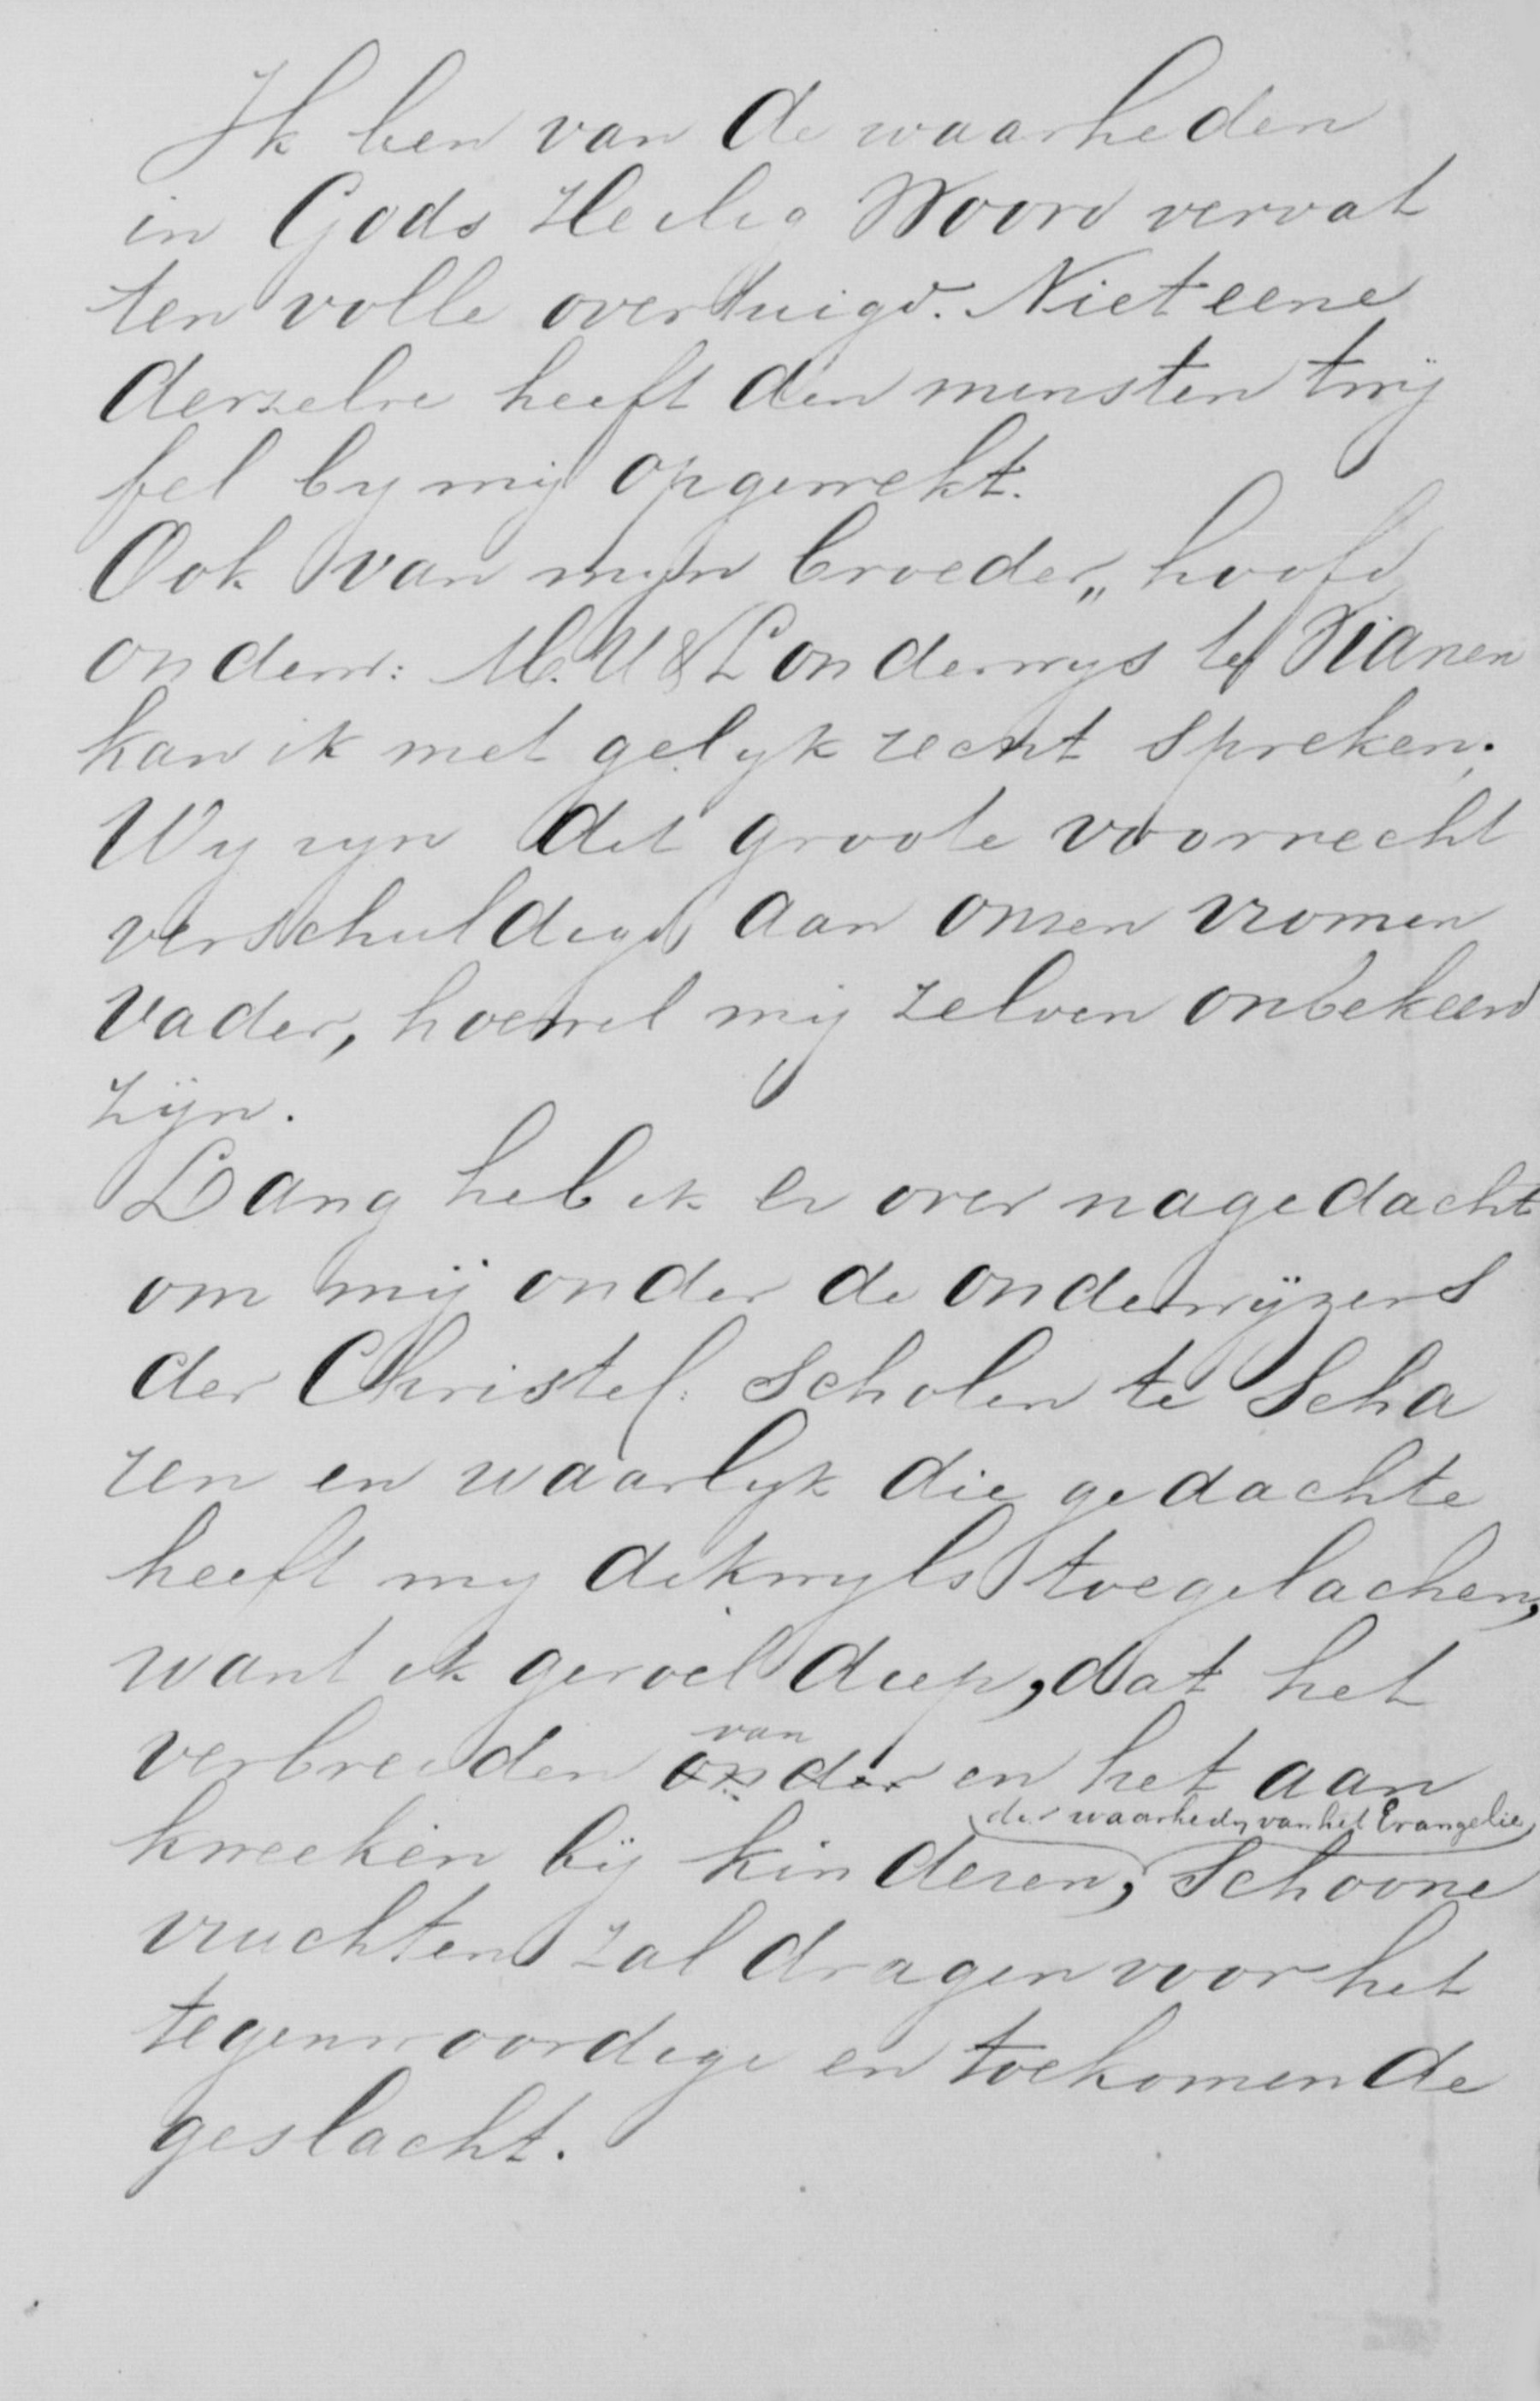 Ik ben van de waarheden
in Gods Heilig Woord vervat
ten volle overtuigd. Niet eene
derzelve heeft den minsten twij
fel by mij opgewekt.
Ook van mijn broeder,, hoofd
onderw: M. U & L onderwys te Vianen
kan ik met gelyk recht spreken.
Wy zyn dit groote voorrecht
verschuldigd aan onzen vromen
vader, hoewel wij zelven onbekeerd
zijn.
Lang heb ik er over nagedacht
om mij onder de onderwijzers
der Christel: Scholen te Scha
ren en waarlyk die gedachte
heeft my dikwyls toegelachen,
want ik gevoel diep, dat het
van
verbreiden onder en het aan
der waarheden van het Evangelie
kweeken bij kinderen, Schoone
vruchten zal dragen voor het
tegenwoordige en toekomende
geslacht.